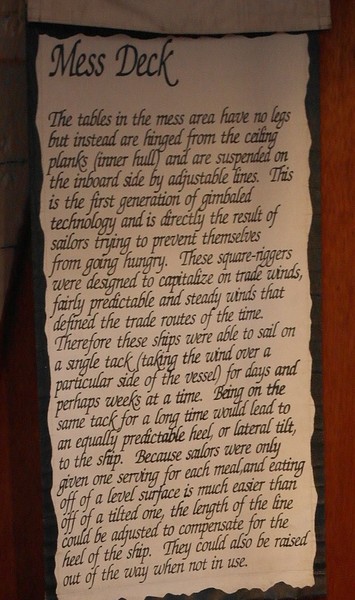 Mess Deck
The tables in the mess area have no legs
but instead are hinged from the ceiling
planks (inner hull) and are suspended on
the inboard side by adjustable lines. This
is the first generation of gimbaled
technology and is directly the result of
sailors trying to prevent themselves
from going hungry. These square-riggers
were designed to capitalize on trade winds,
fairly predictable and steady winds that
defined the trade routes of the time.
Therefore these ships were able to sail on
a single tack (taking the wind over a
particular side of the vessel) for days and
perhaps weeks at a time. Being on the
same tack for a long time would lead to
an equally predictable heel, or lateral tilt,
to the ship. Because sailors were only
given one serving for each meal,and eating
off of a level surface is much easier than
off of a tilted one, the length of the line
could be adjusted to compensate for the
heel of the ship. They could also be raised
out of the way when not in use.